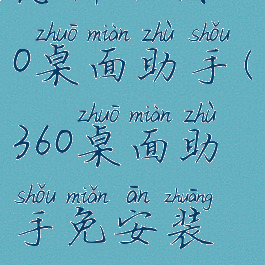 zhuō miàn zhù shǒu
0桌面助手(
zhuō miàn zhù
360桌面助
shǒu miǎn ān zhuāng
手免安装